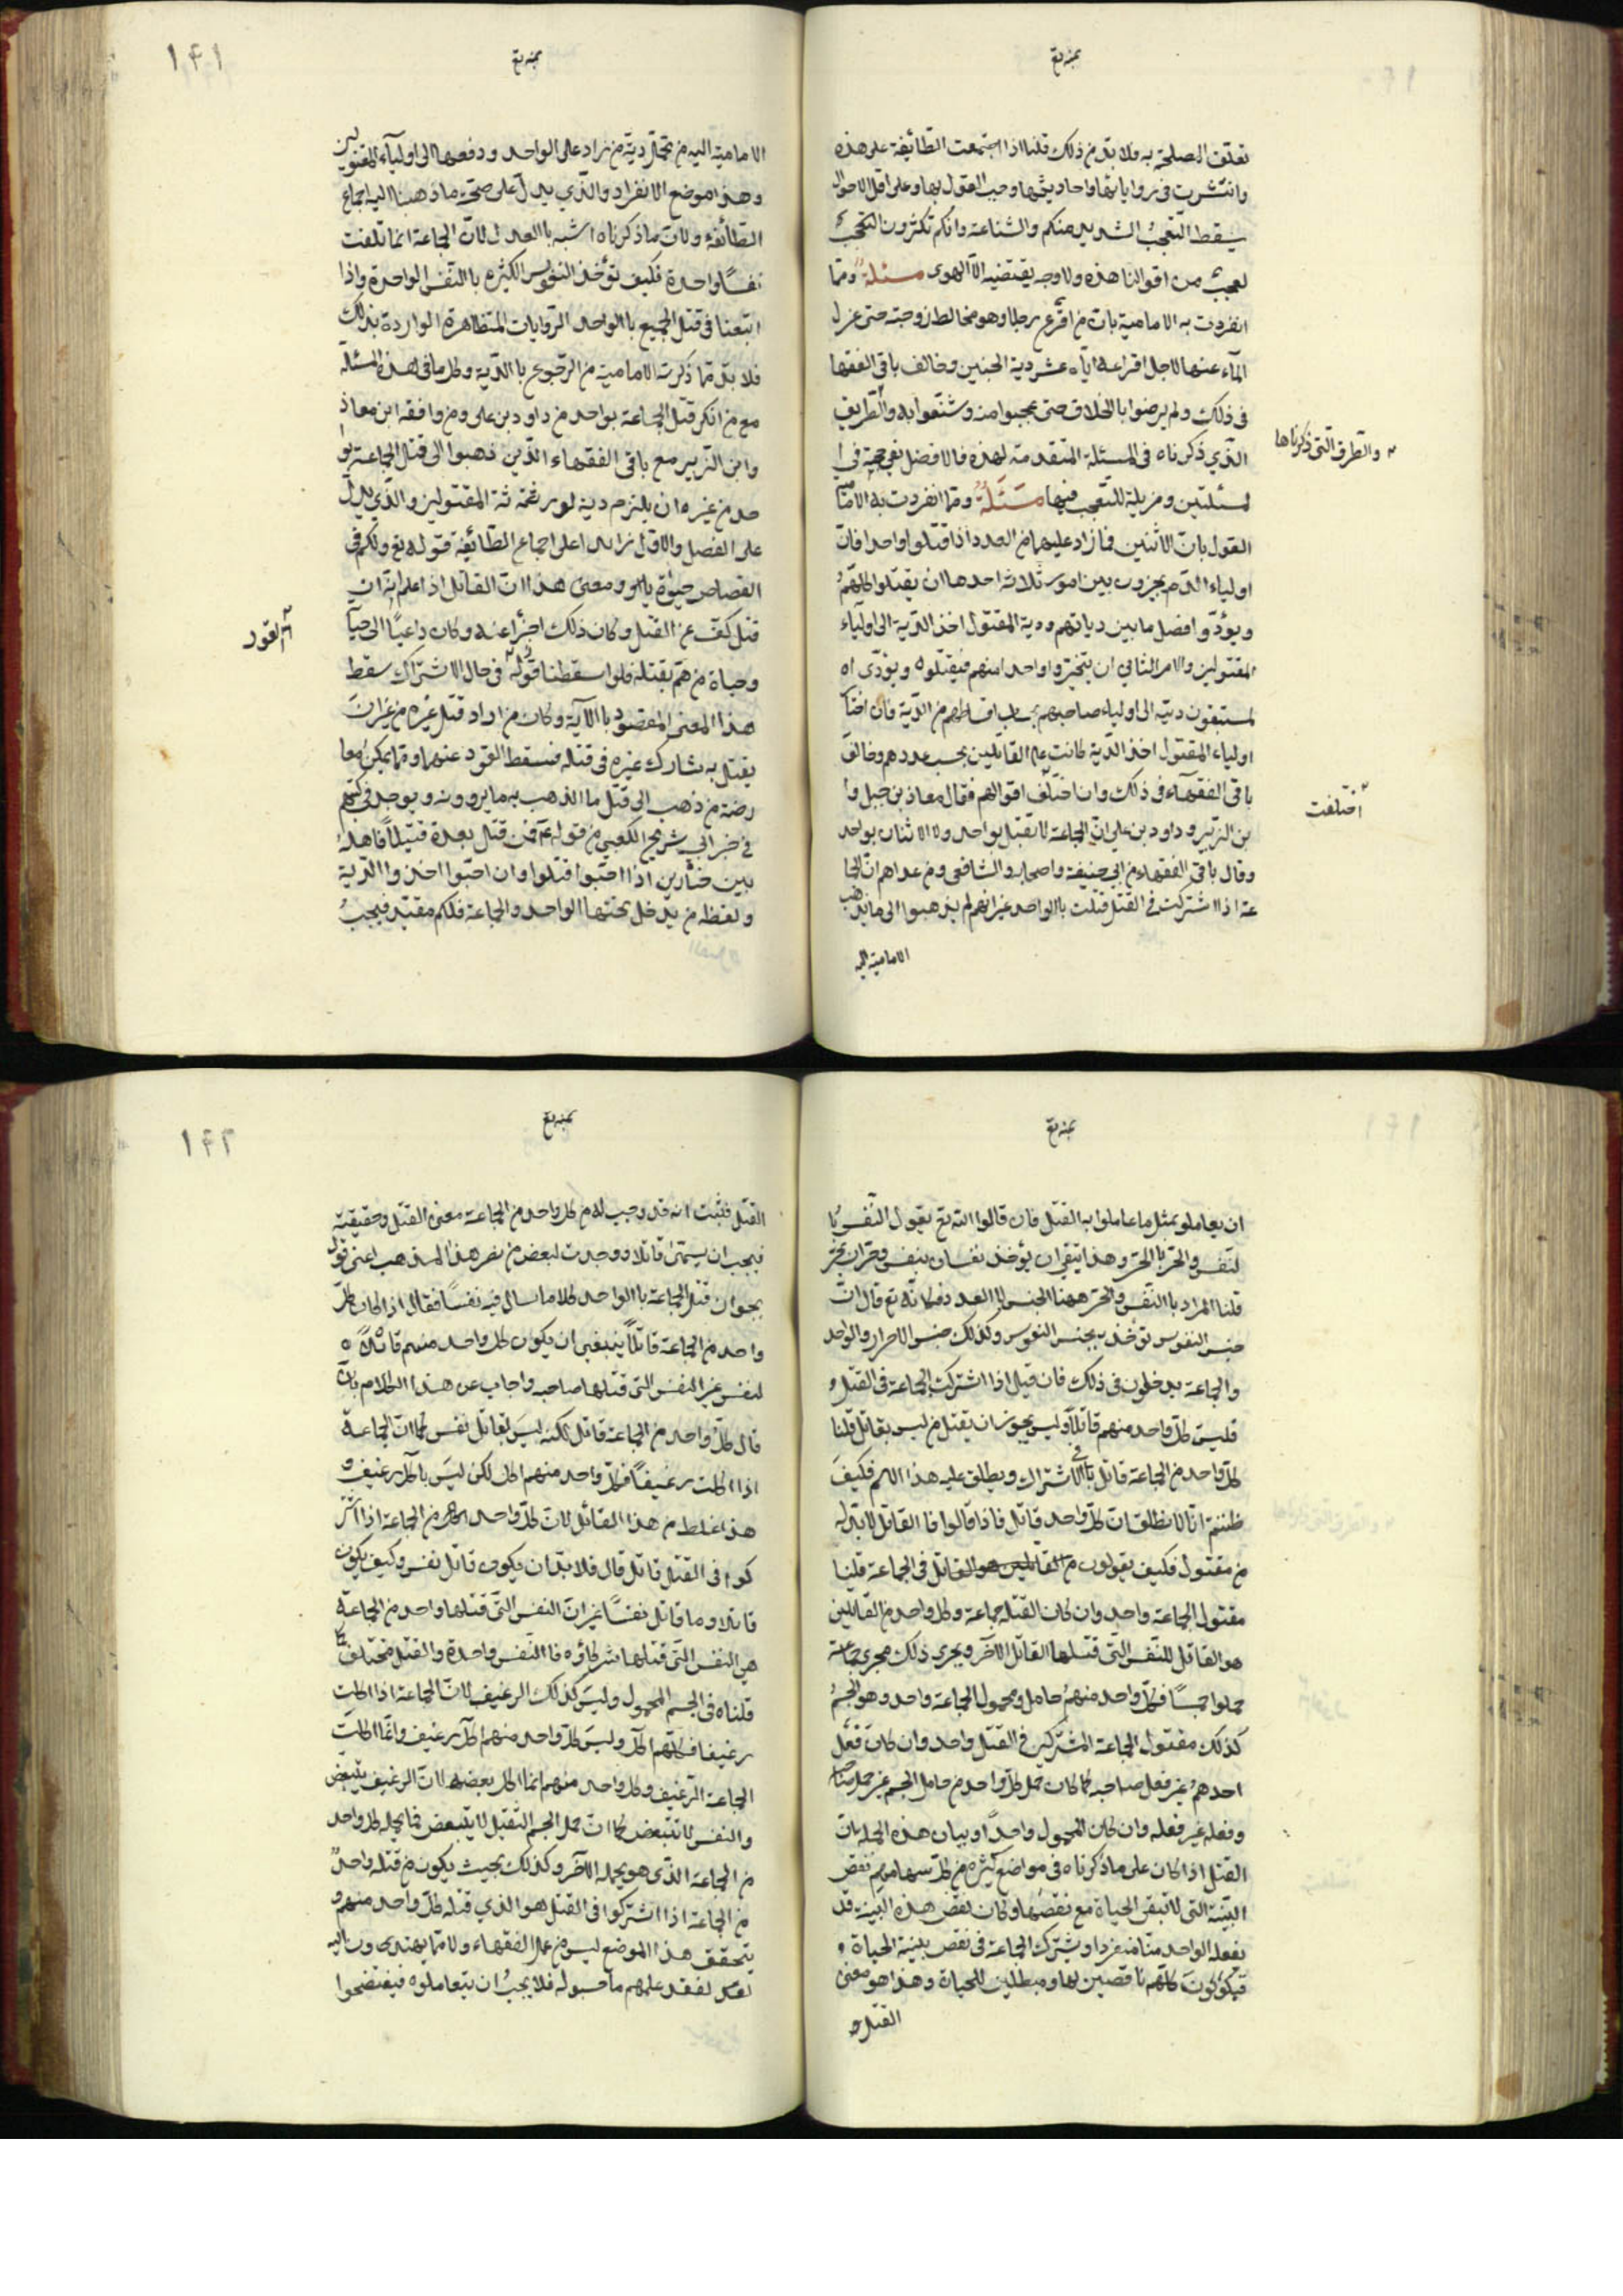 تعلق المصلحة به فلا بد من ذلك قلنا اذا اجتمعت الطائفة على هذه
وانتشرت في رواياتها واحاديثها وجب القول بها وعلى اقل الاحوال
يسقط التعجب الشديد منكم والشناعة وانكم تكثرون التعجب
لعجب من اقوالنا هذه ولا وجه يقتضيه الا الهوى مسئلة ومما
انفردت به الامامية بان من افزع رجلا وهو مخالط زوجته حتى عزل
الماء عنها لاجل افزاعه اياه عشر دية الجنين وخالف باقي الفقها
في ذلك ولم يرضوا بالخلاف حتى عجبوا منه وشنعوا به والطريق
والطرق التي ذكرناها
الذي ذكرناه في المسئلة المتقدمة لهذه فالافضل
لمسئلتين ومزيلة للتعجب فيها مسئلة ومما انفردت به الاما
القول بان الاثنين فما زاد عليهما من العدد اذا قتلوا واحدا فان
اولياء الدم يخيرون بين امور ثلاثة احدها ان يقتلوا كلهم
ويؤدوا فضل ما بين دياتهم ودية المقتول اخذ الدية الى اولياء
لمقتولين والامر الثاني ان يتخيروا واحدا منهم فيقتلوه ويؤدى اه
لمستبقون ديته الى اولياء صاحبهم بحساب اقساطهم من الدية فان اختا
اولياء المقتول اخذ الدية كانت على القاتلين بحسب عددهم وخالف
باقي الفقهاء في ذلك وان اختلف اقوالهم فقال معاذ بن جبل وا
اختلفت
بن الزبير وداود بن علي ان الجماعة لا تقتل بواحد ولا الاثنان بواحد
وقال باقي الفقهاء من ابي حنيفة واصحابه والشافعي ومن عداهم ان الجا
عة اذا اشتركت في القتل قتلت بالواحد غير انهم لم يذهبوا الى ما يذهب
الامامية اليه
١٤١
الامامية اليه من تحمل دية من زاد على الواحد ودفعها الى اولياء المقتولين
وهذا موضع الانفراد والذي يدل على صحة ما ذهبنا اليه اجماع
الطائفة ولان ما ذكرناه اشبه بالعدل لان الجماعة انما تلفت
نفسا واحدة فكيف تؤخذ النفوس الكثيرة بالنفس الواحدة واذا
اتبعنا في قتل الجميع بالواحد الروايات المتظاهرة الواردة بذلك
فلا بد مما ذكرته الامامية من الرجوع بالدية وكلامنا في هذه المسئلة
مع من انكر قتل الجماعة بواحد من داود بن على ومن وافقه ابن معاذ
وابن الزبير مع باقي الفقهاء الذين ذهبوا الى قتل الجماعة بوا
حد من غيره ان يلتزم دية لورثة المقتولين والذي يدل
على الفصل والاول زايدا على اجماع الطائفة قوله تع ولكم في
القصاص حيوة يااو ومعنى هذا ان القاتل اذا علم انه ان
قتل كف عن القتل وكان ذلك اجزا عنه وكان داعيا الى حيا
القود
وحياة من هم بقتله فلو اسقطنا قوله في حال الاشتراك سقط
هذا المعنى المقصود بالآية وكان من اراد قتل غيره من غير ان
يقتل به شارك غيره في قتله فسقط القود عنهما ومما يمكن معا
رضة من ذهب الى قتل ما الذهب به ما يروونه ويوجد في كتبهم
في خبر ابي شريح الكعبي من قوله ع فمن قتل بعده قتيلا فاهله
بين خيارين اذا احبوا اقتلوا وان احبوا اخذوا الدية
ولفظه من يدخل تحتها الواحد والجماعة فلكم مقتد فيجب
ان يعاملو بمثل ما عاملوا به القتل فان قالوا الله تع يقول النفس با
لنفس والحر بالحر وهذا ينفي ان يؤخذ نفسان بنفس وحران بحر
قلنا المراد بالنفس والحر ههنا الجنس لا العدد فكانه تع قال ان
جنس النفوس تؤخذ بجنس النفوس وكذلك جنس الاحرار والواحد
والجماعة يدخلون في ذلك فان قيل اذا اشتركت الجماعة في القتل و
فليس كل واحد منهم قاتلا وليس يجوز ان يقتل من ليس بقاتل قلنا
كل واحد من الجماعة قاتل في الاشتراك ويطلق عليه هذا الاسم فكيف
ظننتم انا لا نطلق ان كل واحد قاتل فاذا قالوا فالقاتل لا بد له
من مقتول فكيف يقولون من القاتلين هو القاتل في الجماعة قلنا
مقتول الجماعة واحد وان كان القتلة جماعة وكل واحد من القاتلين
هو القاتل للنفس التي قتلها القاتل الآخر ويجري ذلك مجرى جماعة
حملوا جسما فكل واحد منهم حامل ومحمول الجماعة واحد وهو الجسم
كذلك مقتول الجماعة المشتركين في القتل واحد وان كان فعل
احدهم غير فعل صاحبه كما كان حمل كل واحد من حامل الجسم غير حمل صاحبه
وفعله غير فعله وان كان المحمول واحدا وبيان هذه الجملة بان
القتل اذا كان على ما ذكرناه في مواضع كثيرة من كلامنا هو نقض
البنية التي لا تبقى الحياة مع نقضها وكان نقض هذه البنية قد
يفعله الواحد منا منفردا ويشترك الجماعة في نقض بنية الحياة و
فيكونون كلهم ناقضين لها ومبطلين للحياة وهذا هو معنى
القتل و
١٤٢
القتل فثبت انه قد وجب لام كل واحد من الجماعة معنى القتل وحقيقته
فيجب ان يسمى قاتلا ووجدت لبعض من نصر هذا المذهب اعني قول
بجوان قتل الجماعة بالواحد كلاما سال فيه نفسا فقال اذا كان كل
واحد من الجماعة قاتلا ينبغي ان يكون كل واحد منهم قاتلا ه
لنفس غير النفس التي قتلها صاحبه واجاب عن هذا الكلام بان
قال كل واحد من الجماعة قاتل لكنه ليس بقاتل نفس كما ان الجماعة
اذا اكلت رغيفا فكل واحد منهم اكل لكن ليس باكل رغيف و
هذا غلط من هذا القائل لان كل واحد من الجماعة اذا اشتر
كوا في القتل قاتل قال فلا بد ان يكون قاتل نفس وكيف يكون
قاتلا وما قاتل نفسا غير ان النفس التي قتلها واحد من الجماعة
هي النفس التي قتلها شركاؤه فالنفس واحدة والقتل مختلف كما
قلناه في الجسم المحمول وليس كذلك الرغيف لان الجماعة اذا اكلت
رغيفا فكلهم اكل وليس كل واحد منهم اكل رغيف وانما اكلت
الجماعة الرغيف وكل واحد منهم انما اكل بعضه لان الرغيف يتبعض
والنفس لا تتبعض كما ان حمل الجسم الثقيل لا يتبعض فما يحمله كل واحد
من الجماعة الذي هو يحمله الآخر وكذلك بحيث يكون من قتله واحد
من الجماعة اذا اشتركوا في القتل هو الذي قتله كل واحد منهم و
يتحقق هذا الموضع ليس من عمل الفقهاء ولا مما يهتدون اليه
لفقد علمهم ما حسبوله فلا يجب ان يتعاملوه فيفتضحوا